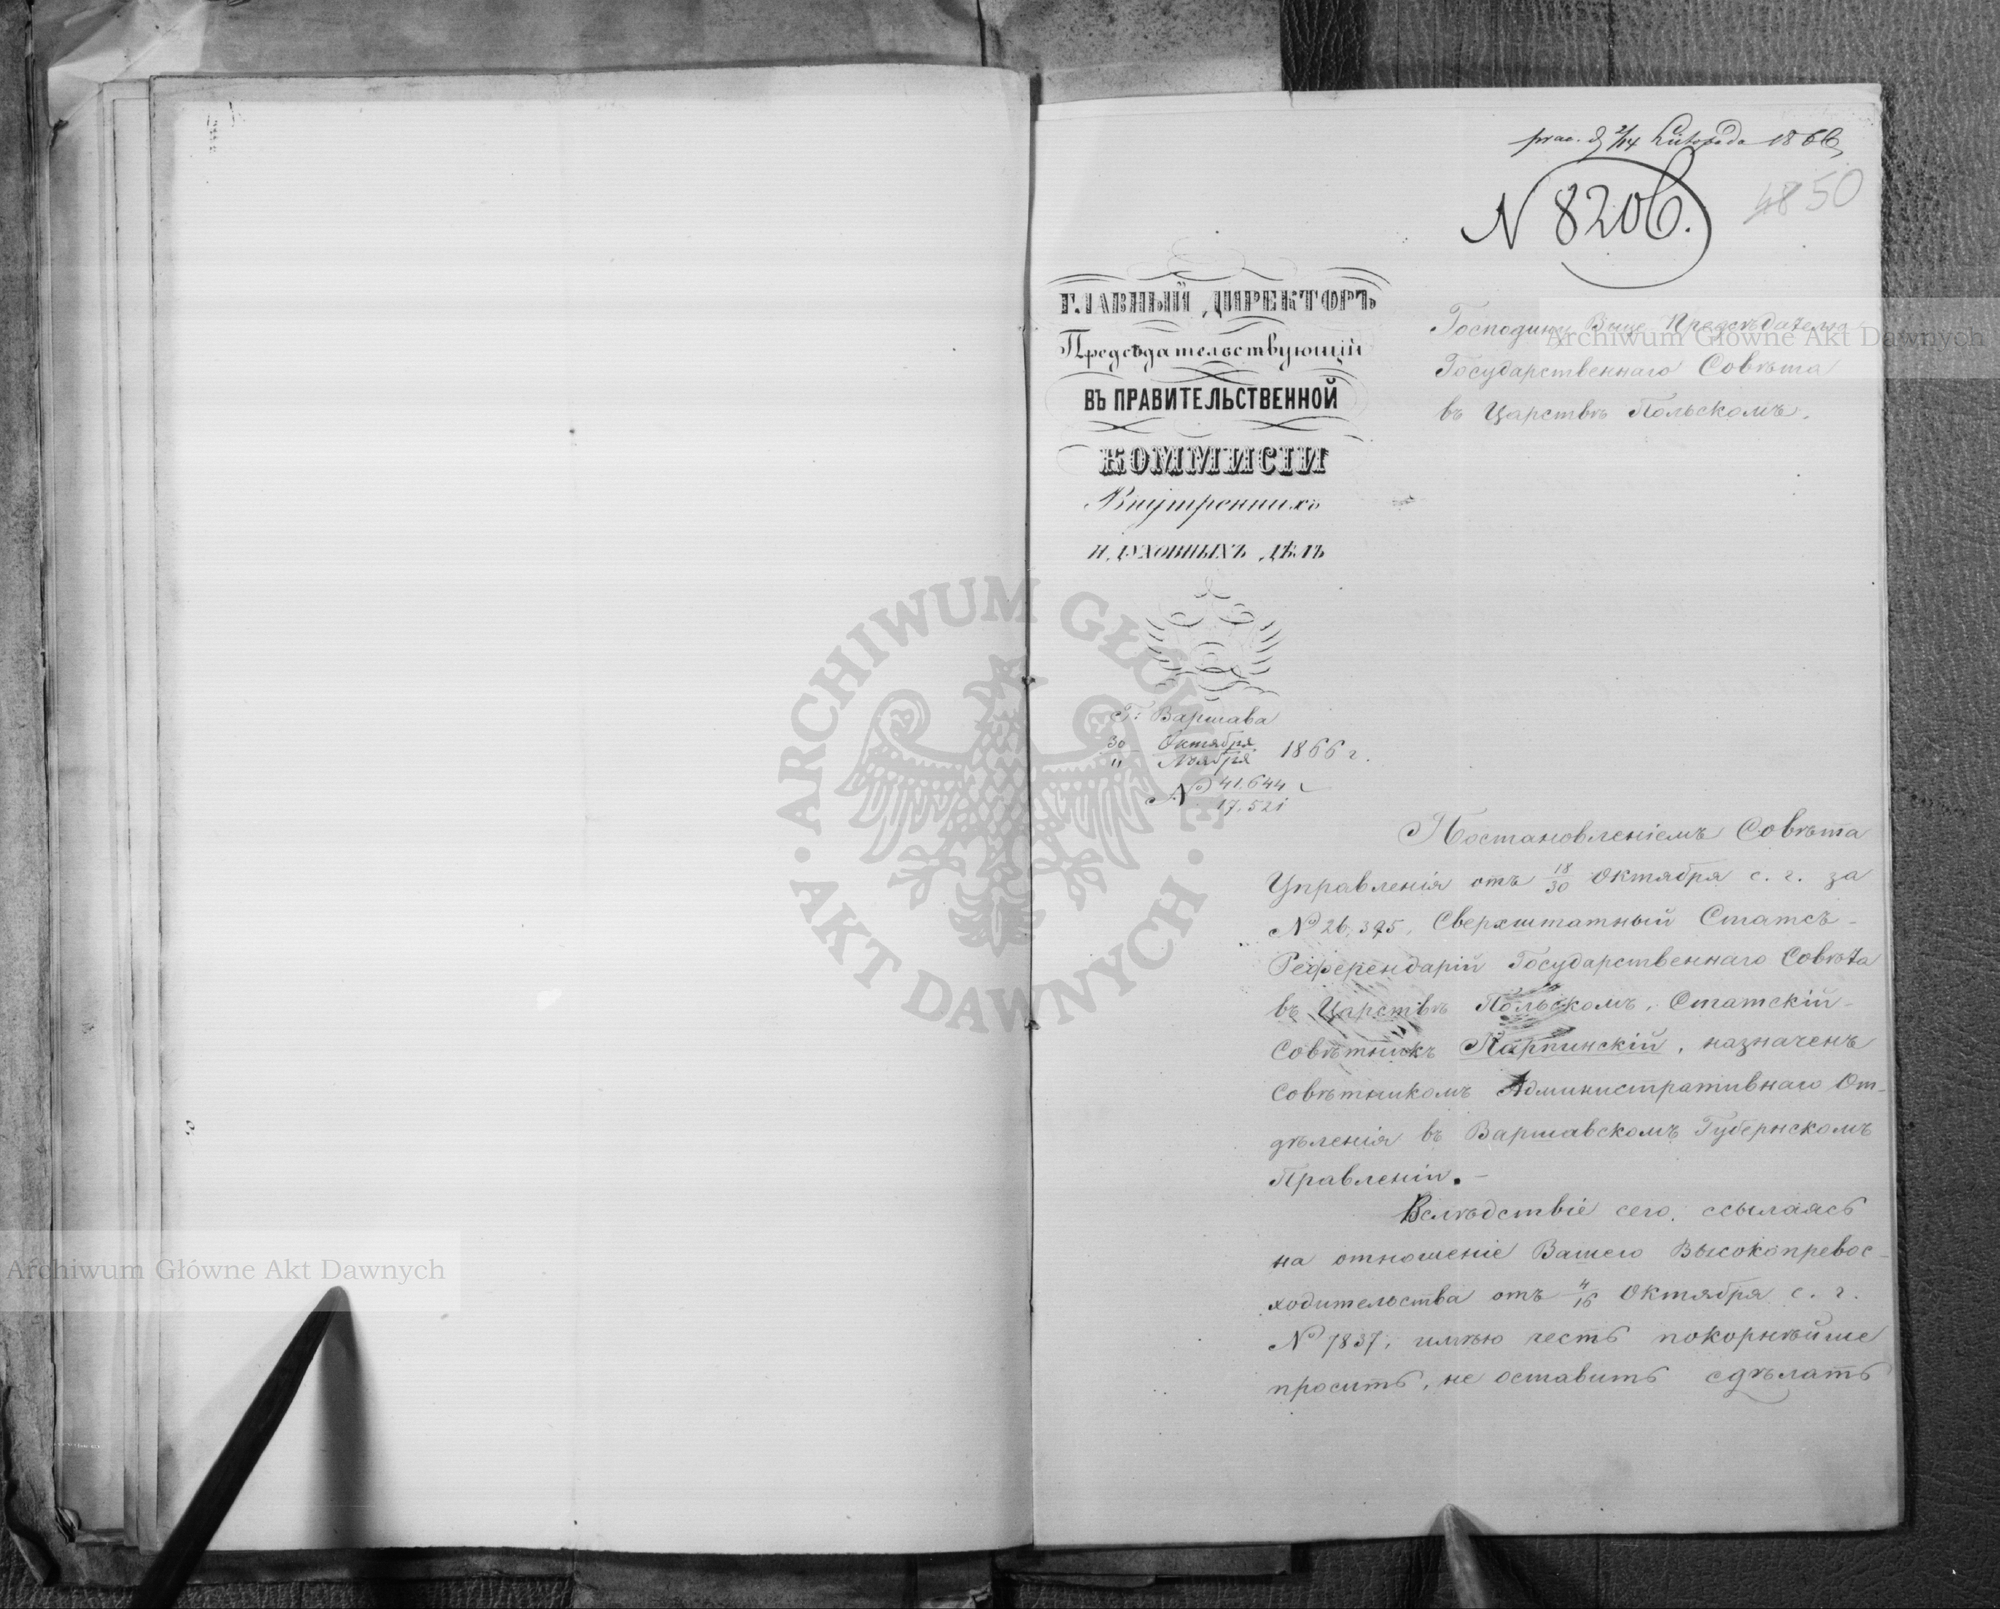 prac. d 2/14 Listopada 1866
N 8206.
48 50
ГЛАВНЫЙ ДИРЕКТОРЪ
Предсѣдательствующій
ВЪ ПРАВИТЕЛЬСТВЕННОЙ
КОММИСІИ
Внутреннихъ
И ДУХОВНЫХЪ ДѢЛЪ
Господину Вице Предсѣдателю
Государственнаго Совѣта
въ Царствѣ Польскомъ.
Г. Варшава
30 Октября / 11 Ноября 1866 г.
№ 41.644 / 17.521
Постановленіемъ Совѣта
Управленія отъ 18/30 Октября с. г. за
№ 26,395, Сверхштатный Статсъ-
Референдарій Государственнаго Совѣта
въ Царствѣ Польскомъ, Статскій
Совѣтникъ Карпинскій, назначенъ
Совѣтникомъ Административнаго От-
дѣленія въ Варшавскомъ Губернскомъ
Правленіи.-
Вслѣдствіе сего, ссылаясь
на отношеніе Вашего Высокопревос-
ходительства отъ 4/16 Октября с. г.
№ 7837, имѣю честь покорнѣйше
просить, не оставить сдѣлать
Archiwum Główne Akt Dawnych
ARCHIWUM GŁÓWNE · AKT DAWNYCH ·
Archiwum Główne Akt Dawnych